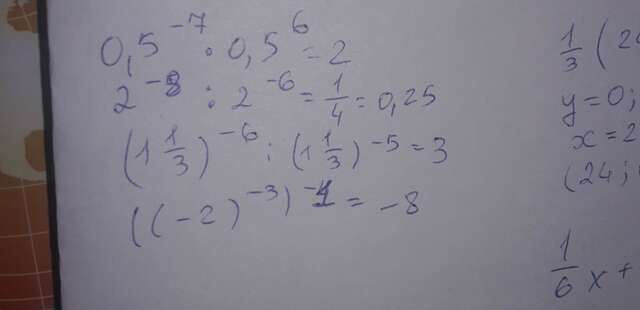 0,5⁻⁷ · 0,5⁶ = 2
2⁻⁸ : 2⁻⁶ = 1/4 = 0,25
(1 1/3)⁻⁶ : (1 1/3)⁻⁵ = 3
((-2)⁻³)⁻¹ = -8
1/3 (
y = 0;
x = 2
(24;
1/6 x +